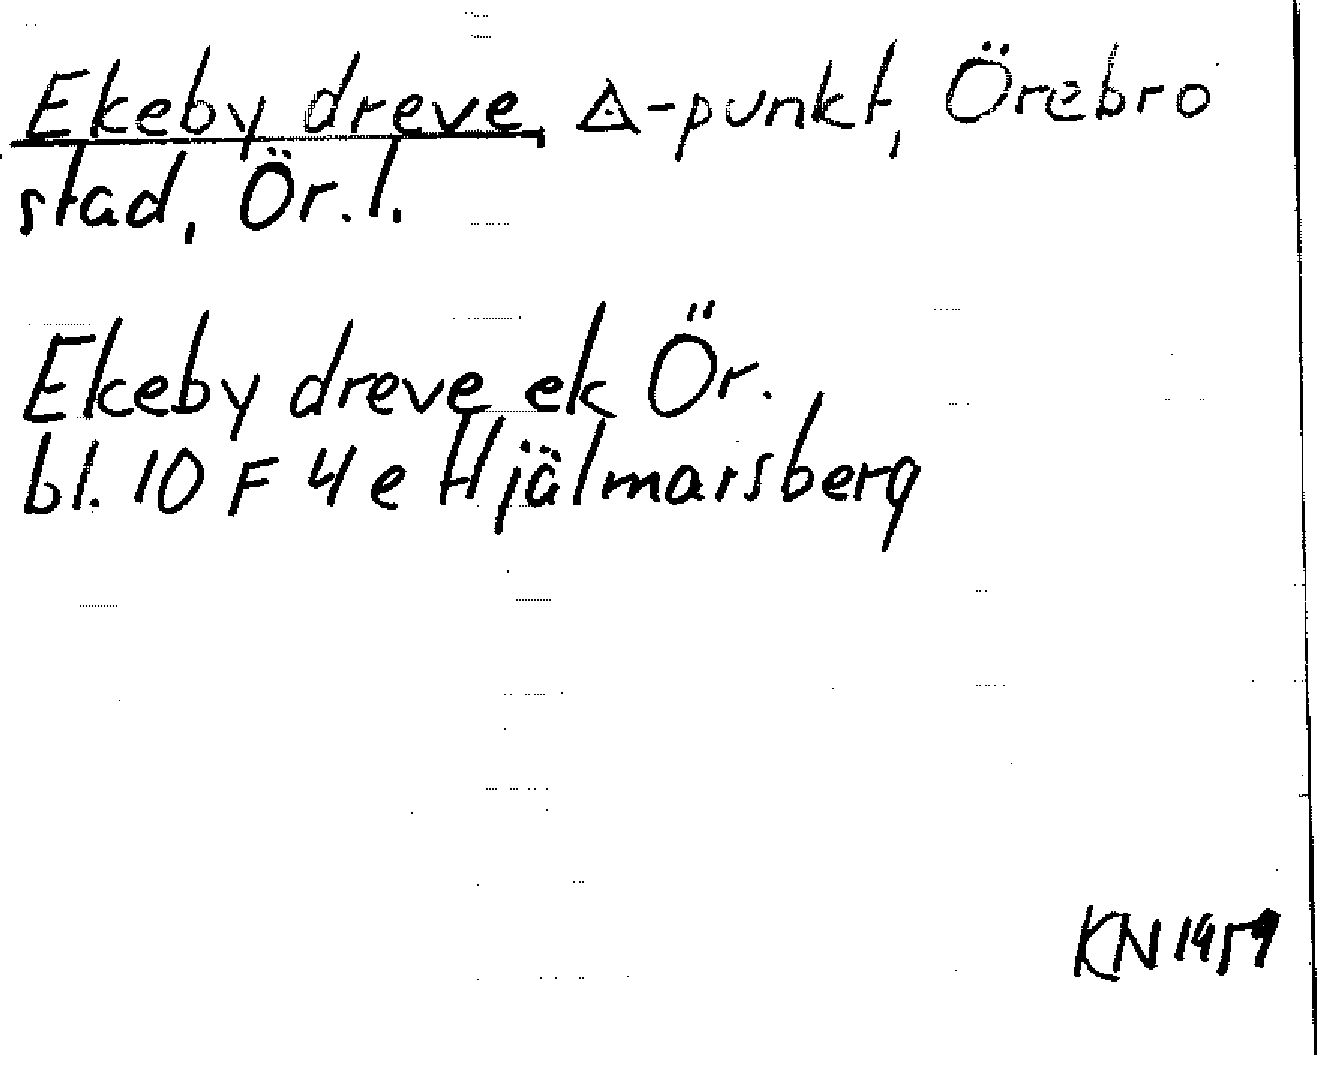 Ekeby dreve, △-punkt, Örebro
stad, Ör. l.
Ekeby dreve ek Ör.
bl. 10 F 4 e Hjälmarsberg
KN 1959